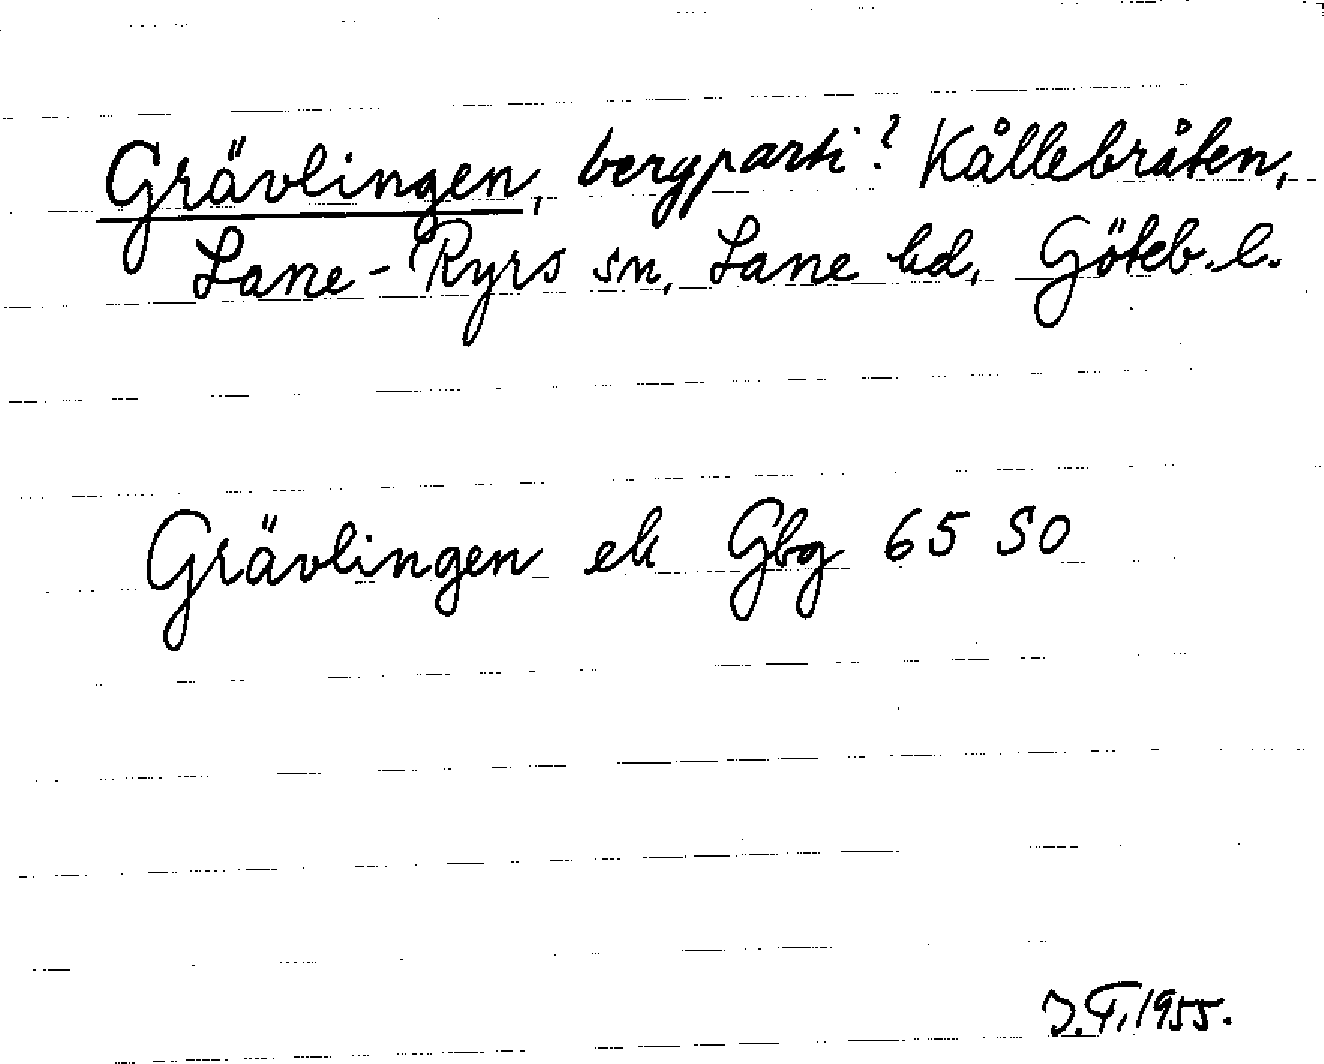 Grävlingen, bergparti? Kållebråten,
Lane-Ryrs sn, Lane hd, Göteb. l.
Grävlingen ek Gbg 65 SO
J.T. 1955.